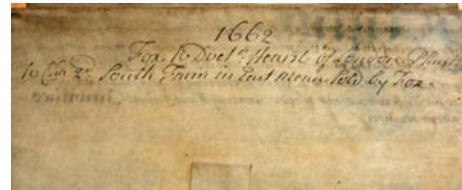 1662
Fox to Doctr. Hearst of London
South Farm in East meon sold by Fox